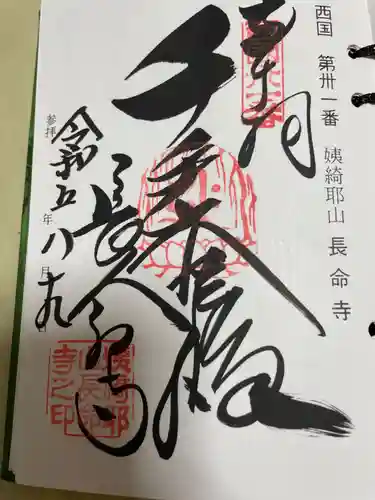 西国 第卅一番 姨綺耶山 長命寺
奉拝
千手大悲殿
長命寺
参拝 令和五年八月九日
姨綺耶
山長命
寺之印